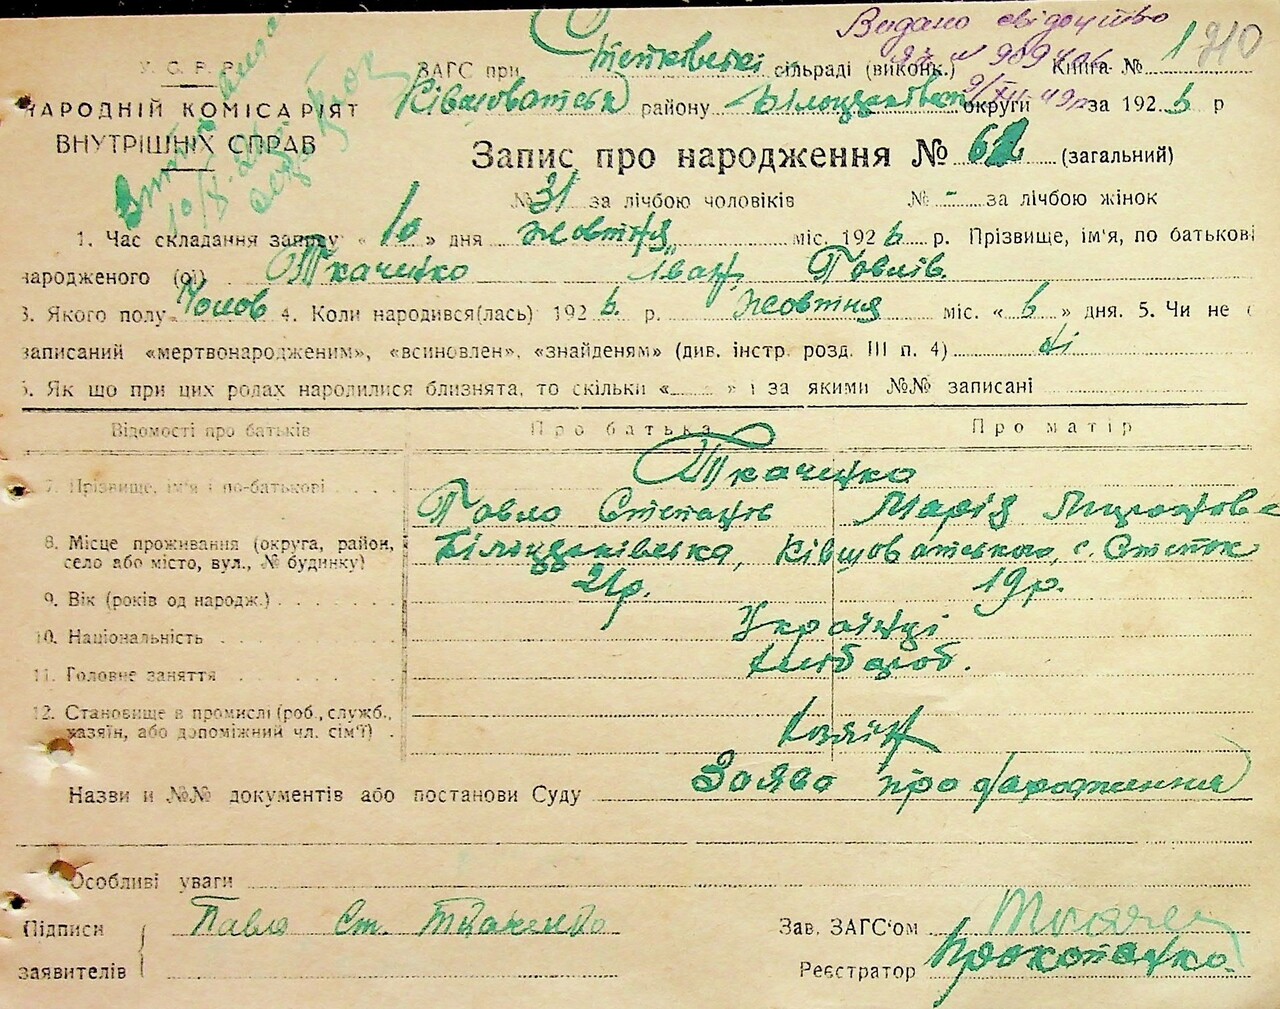 Видано свідоцтво
9/XII-49р.
У. С. Р. Р.
НАРОДНІЙ КОМІСАРІЯТ
ВНУТРІШНІХ СПРАВ
10/X-26
ЗАГС при Степківській сільраді (виконк.) Книга № 1 710
Ківшоватськ району Білоцерківськ округи за 1926 р
Запис про народження № 62 (загальний)
№ 31 за лічбою чоловіків № - за лічбою жінок
1. Час складання запису „ 10 » дня жовтня міс. 1926 р. Прізвище, ім'я, по батькові
народженого (ої) Ткаченко Іван Павлів.
3. Якого полу Чолов 4. Коли народився(лась) 1926. р. жовтня міс. « 6 » дня. 5. Чи не
записаний «мертвонародженим», «всиновлен», «знайденям» (див. інстр. розд. III п. 4) ні
6. Як що при цих родах народилися близнята, то скільки « » і за якими №№ записані
Відомості про батьків Про батька Про матір
Ткаченко
7. Прізвище, ім'я і по-батькові Павло Степанів Марія
8. Місце проживання (округа, район, Білоцерківська, Ківшоватського, с. Степок
село або місто, вул., № будинку)
9. Вік (років од народж.) 21р. 19р.
10. Національність Українці
11. Головне заняття хлібороб.
12. Становище в промислі (роб., служб.,
хазяїн, або допоміжний чл. сім'ї) хазяїн
Назви и №№ документів або постанови Суду Заява про народження
Особливі уваги
Підписи Павло Ст. Ткаченко Зав. ЗАГС'ом
заявителів Реєстратор Прокопенко.